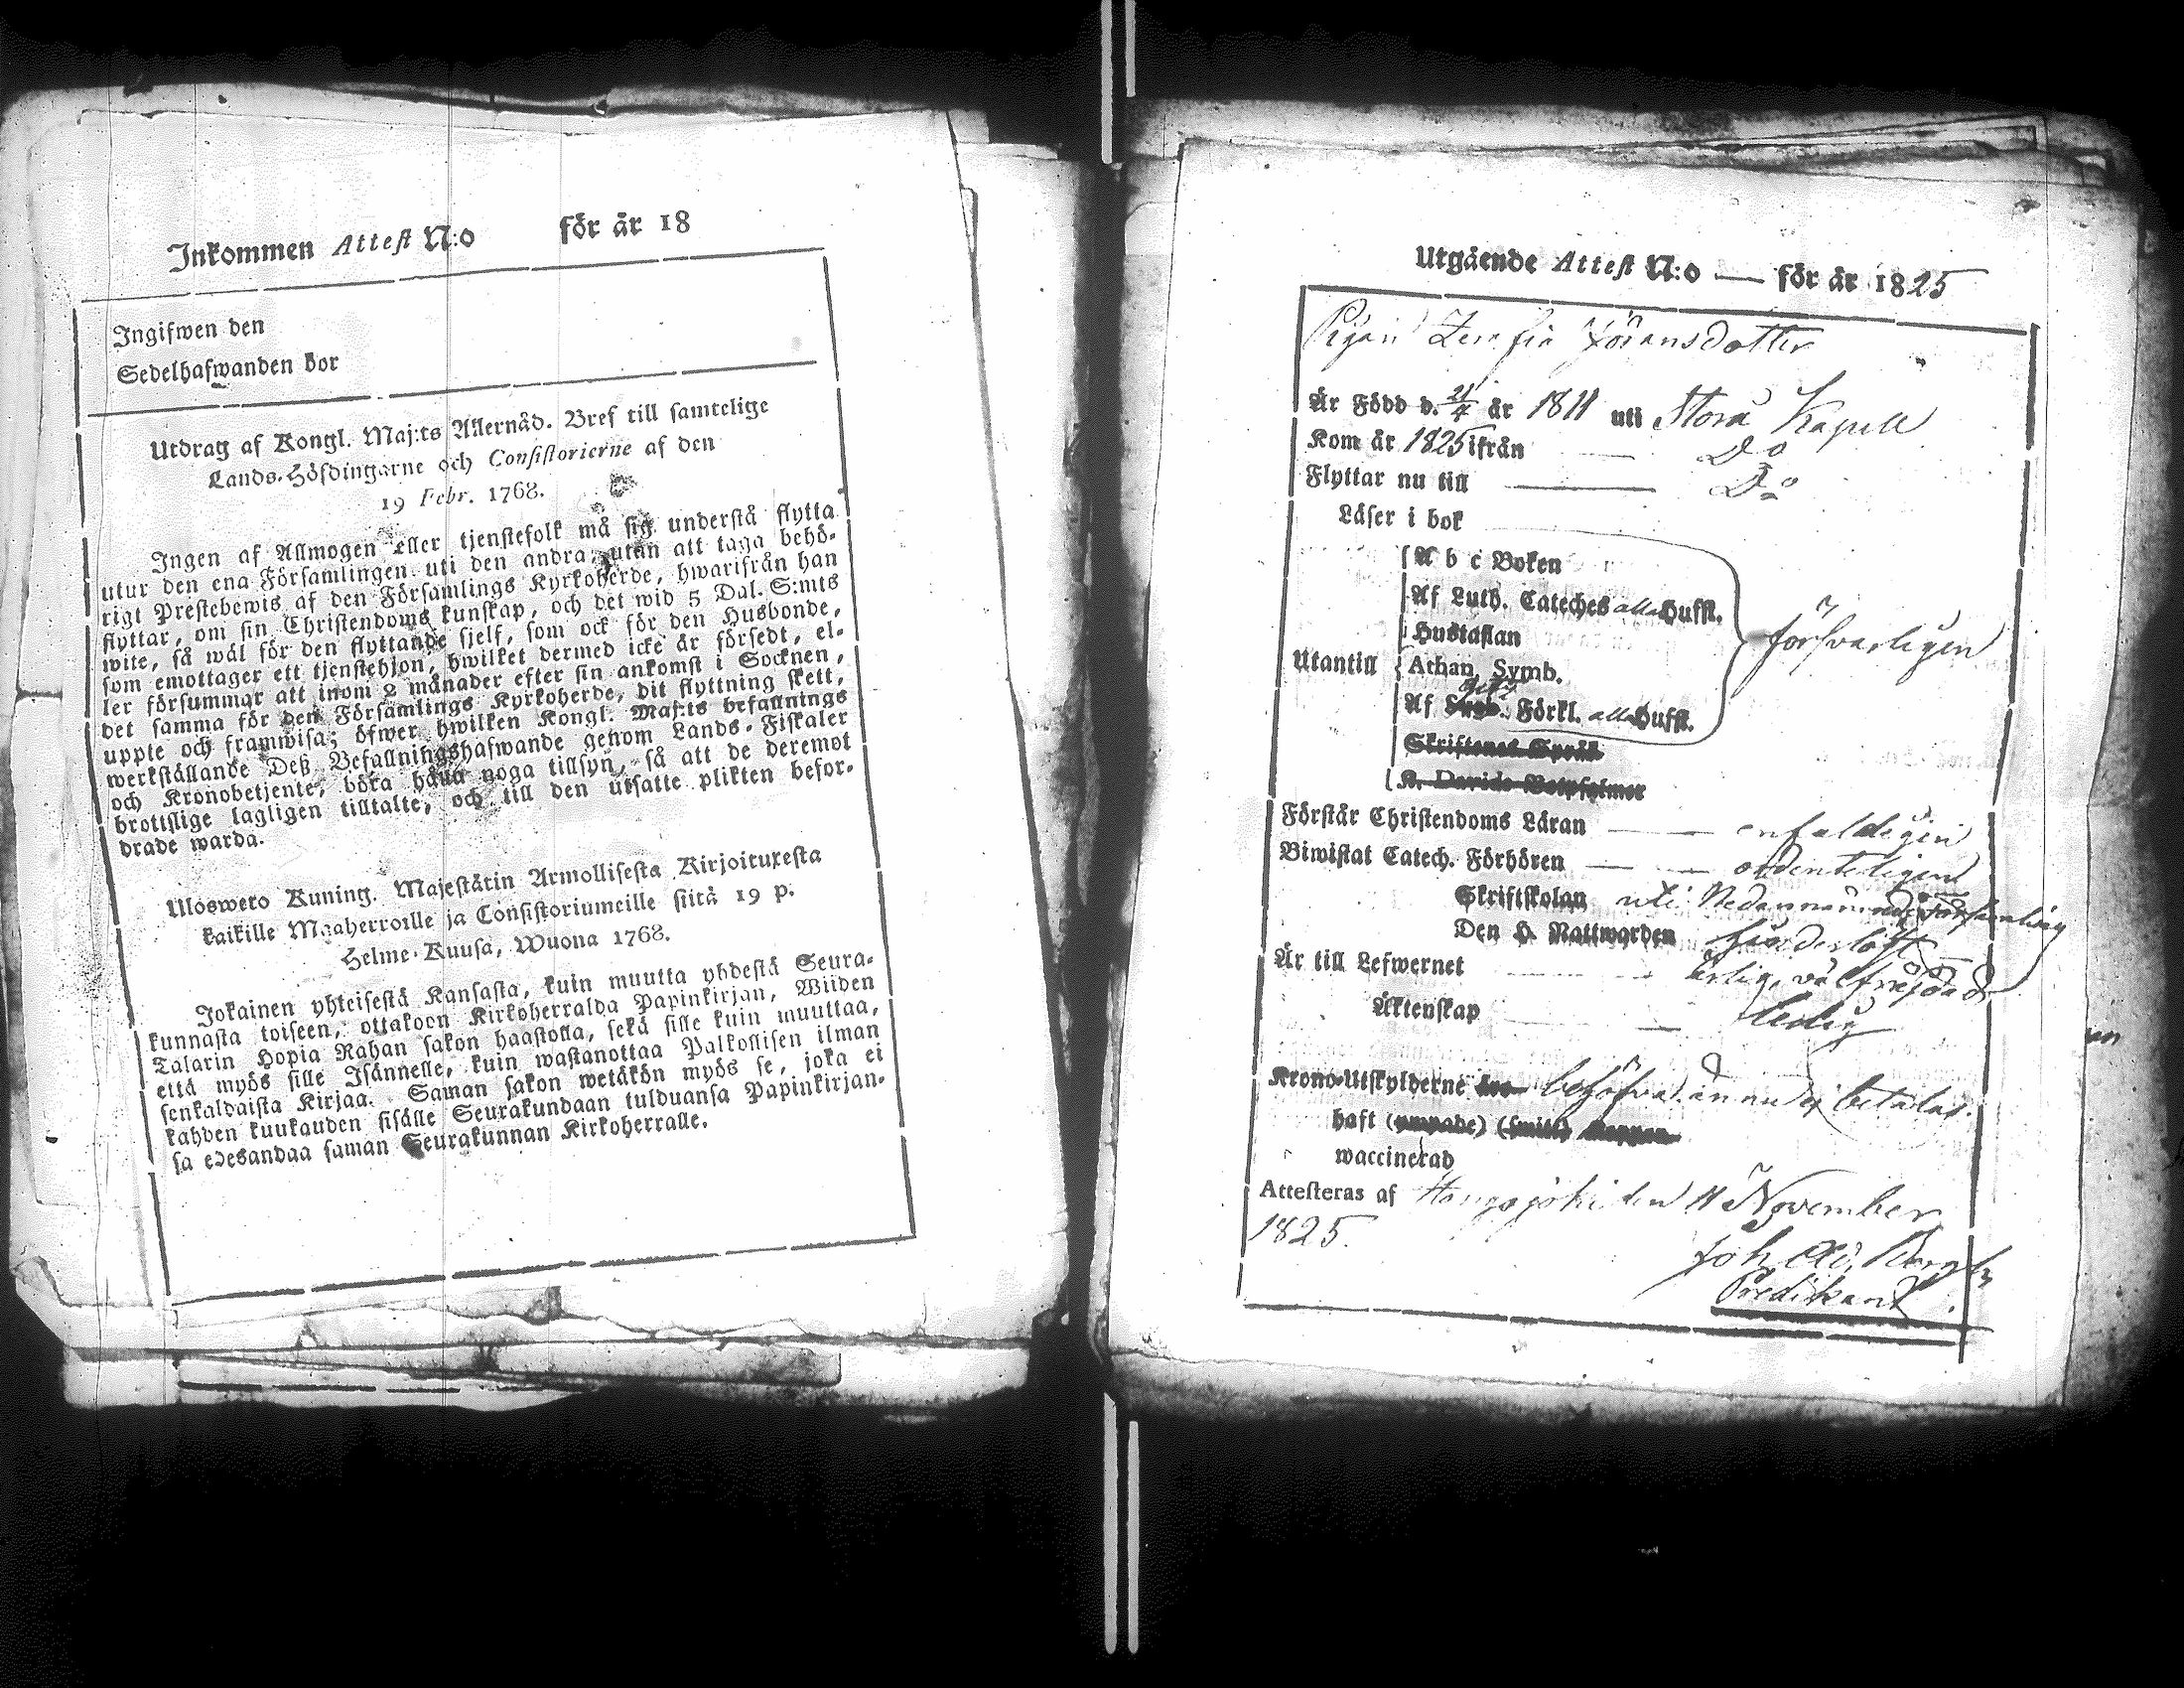 Inkommen Attest N:o för år 18
Ingifwen den
Sedelhafwanden bor
Utdrag af Kongl. Maj:ts Allernåd. Bref till samtelige
Lands-Höfdingarne och Consistorierne af den
19 Febr. 1768.
Ingen af Allmogen eller tjenstefolk må sig understå flytta
utur den ena Församlingen uti den andra, utan att taga behö-
rigt Prestebewis af den Församlings Kyrkoherde, hwarifrån han
flyttar, om sin Christendoms kunskap, och det wid 5 Dal. S:mts
wite, så wäl för den flyttande sjelf, som ock för den Husbonde,
som emottager ett tjenstehjon, hwilket dermed icke är försedt, el-
ler försummar att inom 2 månader efter sin ankomst i Socknen,
det samma för den Församlings Kyrkoherde, dit flyttning skett,
uppte och framwisa; öfwer hwilken Kongl. Maj:ts befallnings
werkställande Deß Befallningshafwande genom Lands-Fiskaler
och Kronobetjente, böra hålla noga tillsyn, så att de deremot
brottslige lagligen tilltalte, och till den utsatte plikten befor-
drade warda.
Uloswero Kuning. Majestätin Armollisesta Kirjoituxesta
kaikille Maaherroille ja Consistoriumeille siitä 19 p.
Helme-Kuusa, Wuona 1768.
Jokainen yhteisestä Kansasta, kuin muutta yhdestä Seura-
kunnasta toiseen, ottakoon Kirkoherralda Papinkirjan, Wiiden
Talarin Hopia Rahan sakon haastolla, sekä sille kuin muuttaa,
että myös sille Isännelle, kuin wastanottaa Palkollisen ilman
senkaldaista Kirjaa. Saman sakon wetäkön myös se, joka ei
kahden kuukauden sisälle Seurakundaan tulduansa Papinkirjan-
sa edesandaa saman Seurakunnan Kirkoherralle.
Utgående Attest N:o — för år 1825
Pigan Zerafia Jöransdotter
Är Född d. 21/4 år 1811 uti Stora Kapell
Kom år 1825 ifrån Do
Flyttar nu till Do
Läser i bok
A b c Boken
Af Luth. Cateches alla Hufst.
Hustaflan
Utantill Athan. Symb.
Af Förkl. alla Hufst.
försvarligen
Skriftenes Språk
K. Davids Botpsalmer
Förstår Christendoms Läran enfaldigen
Biwistat Catech. Förhören ordenteligen
Skriftskolan uti Nedannämnde Församling
Den H. Nattwarden
Är till Lefwernet ärlig, välfrejdad
Äktenskap ledig
Krono-Utskylderne behöfva ännu ej betalas.
haft (ympade) (smitt) Koppor
waccinerad
Attesteras af den 11 November
1825.
Joh.
Predikant.